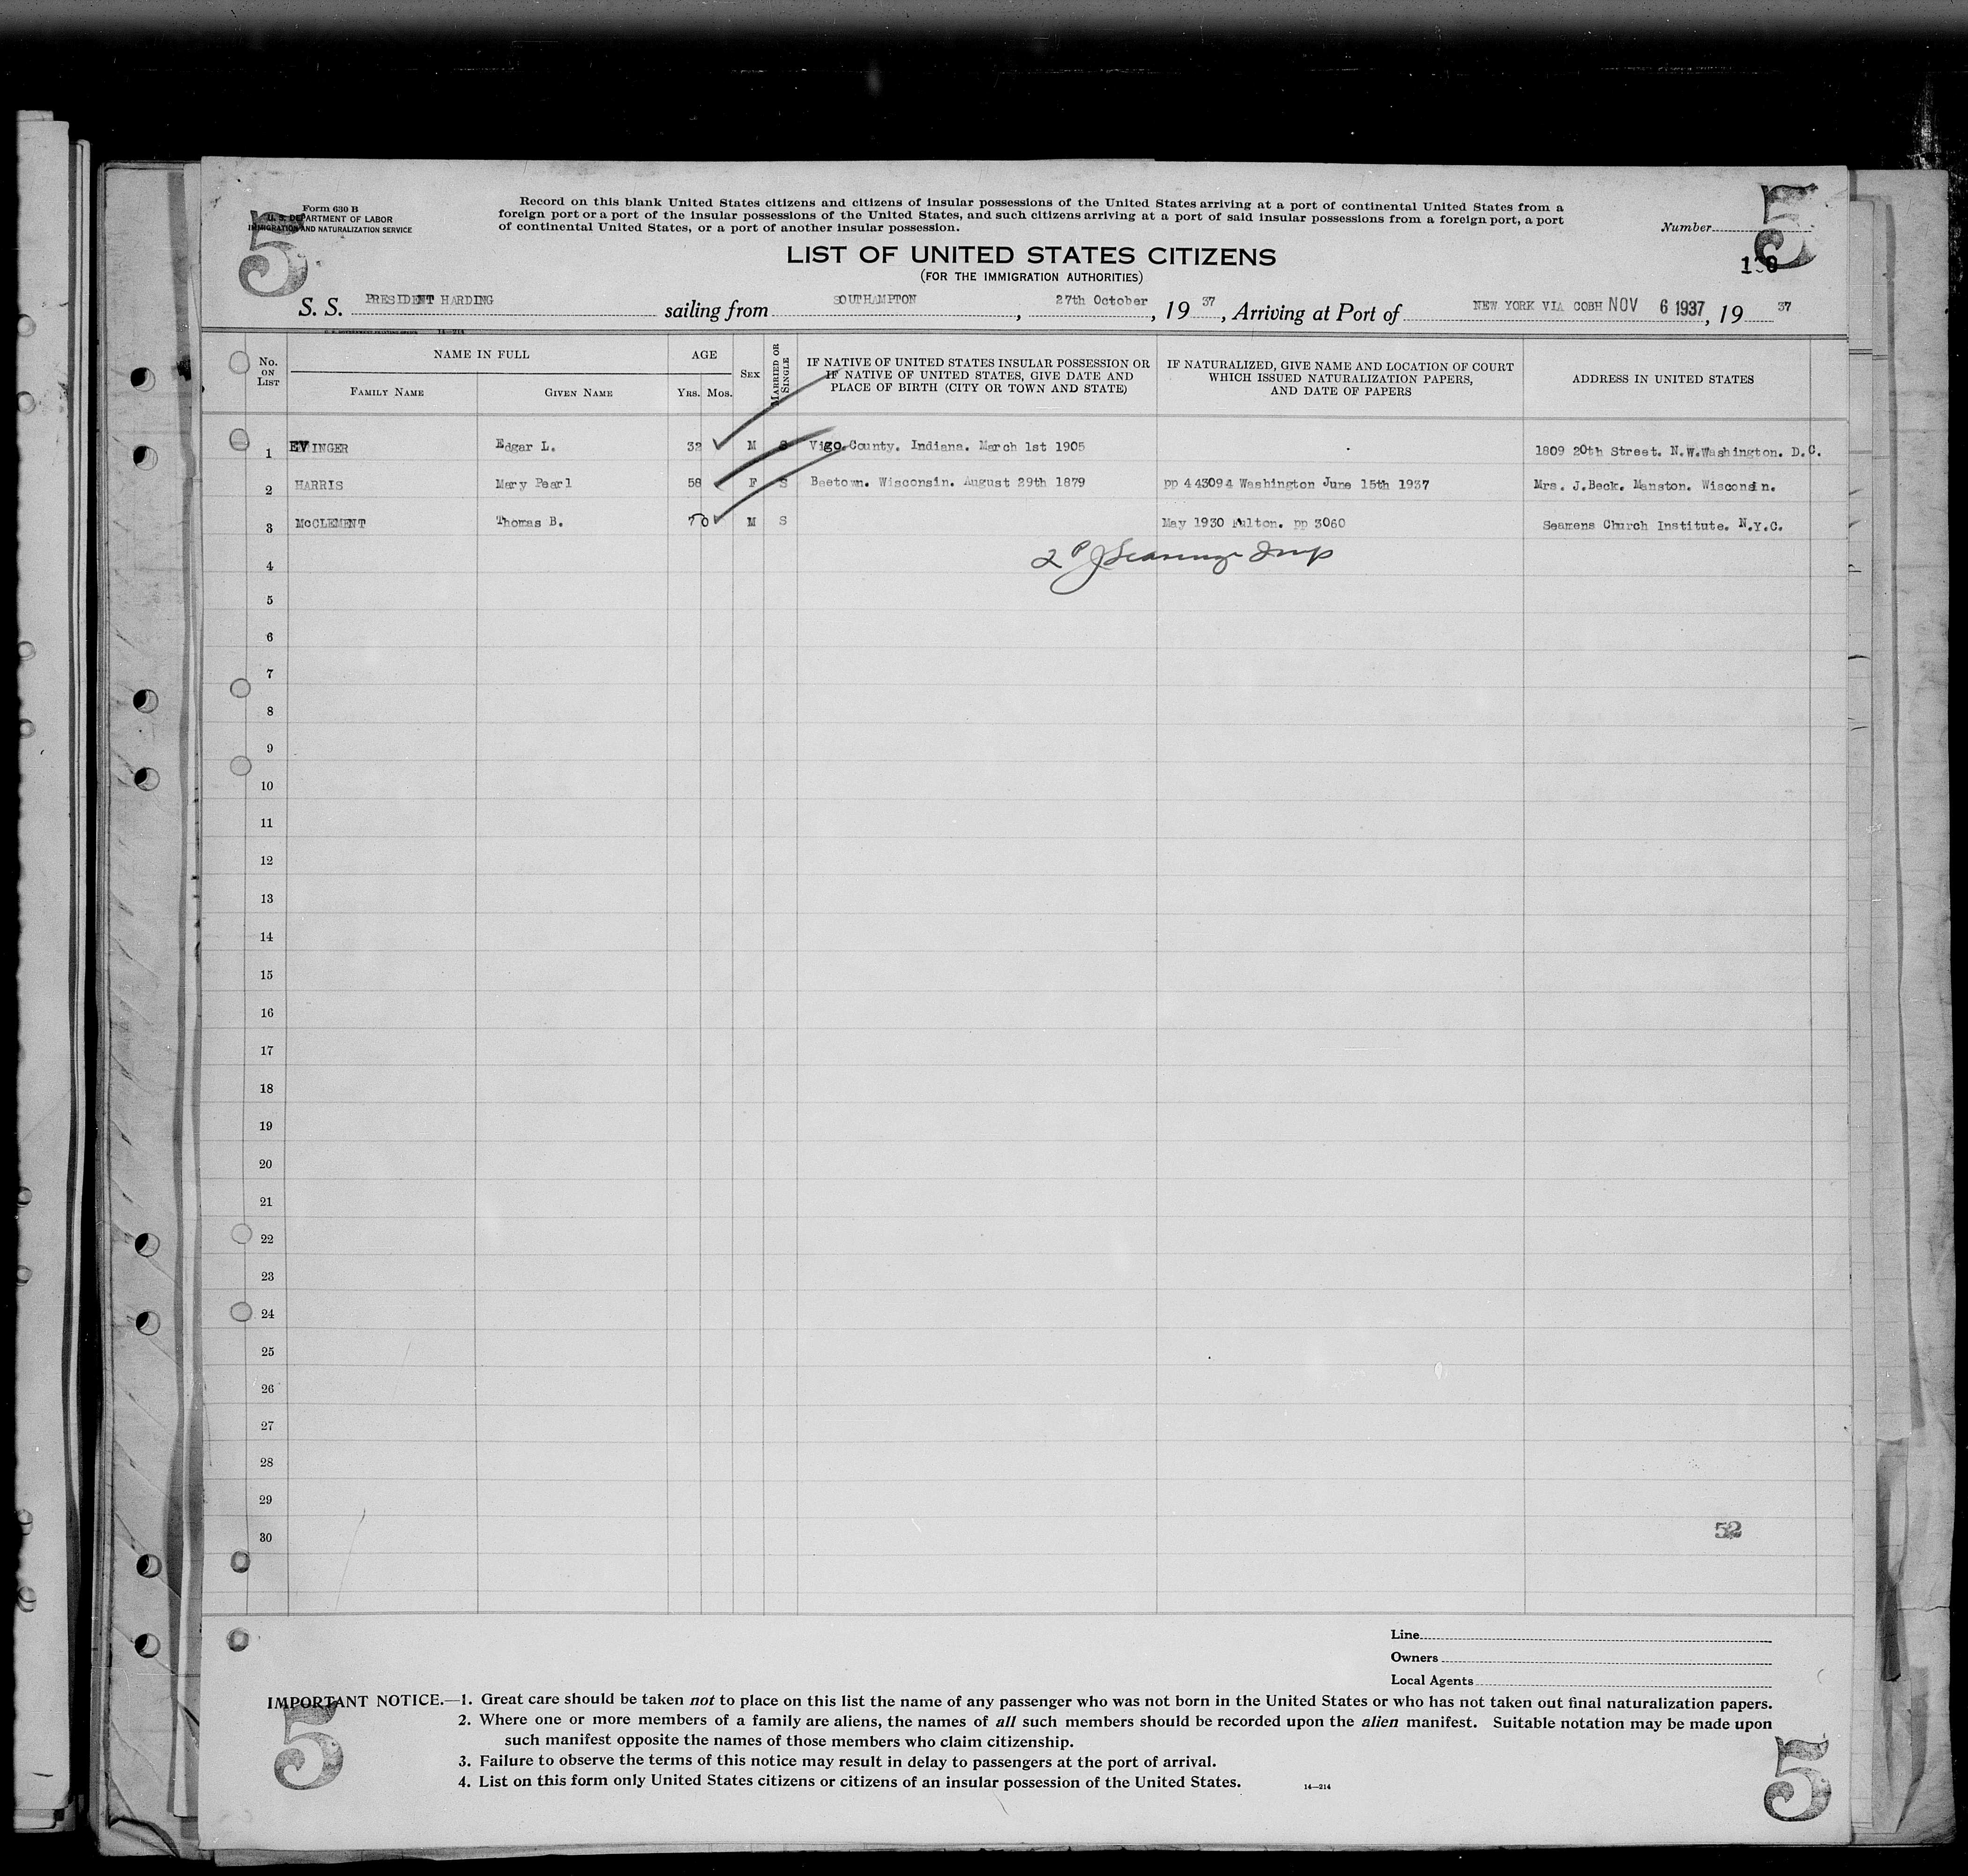 Form 630 B
U. S. DEPARTMENT OF LABOR
IMMIGRATION AND NATURALIZATION SERVICE
5
Record on this blank United States citizens and citizens of insular possessions of the United States arriving at a port of continental United States from a
foreign port or a port of the insular possessions of the United States, and such citizens arriving at a port of said insular possessions from a foreign port, a port
of continental United States, or a port of another insular possession.
Number
5
LIST OF UNITED STATES CITIZENS
(FOR THE IMMIGRATION AUTHORITIES)
S. S. PRESIDENT HARDING sailing from SOUTHAMPTON, 27th October, 1937, Arriving at Port of NEW YORK VIA COBH NOV 6 1937, 19 37
14—214
No. ON LIST
NAME IN FULL
FAMILY NAME
GIVEN NAME
AGE
YRS. MOS.
SEX
MARRIED OR SINGLE
IF NATIVE OF UNITED STATES INSULAR POSSESSION OR
IF NATIVE OF UNITED STATES, GIVE DATE AND
PLACE OF BIRTH (CITY OR TOWN AND STATE)
IF NATURALIZED, GIVE NAME AND LOCATION OF COURT
WHICH ISSUED NATURALIZATION PAPERS,
AND DATE OF PAPERS
ADDRESS IN UNITED STATES
1 EVINGER Edgar L. 32 M S Vigo.County. Indiana. March 1st 1905 1809 20th Street. N.W.Washington. D.C.
2 HARRIS Mary Pearl 58 F S Beetown. Wisconsin. August 29th 1879 pp 443094 Washington June 15th 1937 Mrs. J.Beck. Manston. Wisconsin.
3 McCLEMENT Thomas B. 70 M S May 1930 Fulton. pp 3060 Seamens Church Institute. N.Y.C.
4
5
6
7
8
9
10
11
12
13
14
15
16
17
18
19
20
21
22
23
24
25
26
27
28
29
30
52
Line
Owners
Local Agents
IMPORTANT NOTICE.—1. Great care should be taken not to place on this list the name of any passenger who was not born in the United States or who has not taken out final naturalization papers.
2. Where one or more members of a family are aliens, the names of all such members should be recorded upon the alien manifest. Suitable notation may be made upon
such manifest opposite the names of those members who claim citizenship.
3. Failure to observe the terms of this notice may result in delay to passengers at the port of arrival.
4. List on this form only United States citizens or citizens of an insular possession of the United States.
14—214
5
5